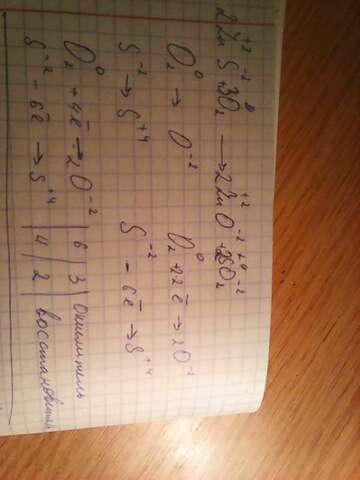 2Zn⁺²S⁻²+3O₂⁰ → 2Zn⁺²O⁻²+2S⁺⁴O₂⁻²
O₂⁰ → O⁻² O₂⁰+2·2ē → 2O⁻²
S⁻² → S⁺⁴ S⁻² - 6ē → S⁺⁴
O₂⁰ + 4ē → 2O⁻² | 6 | 3 | окислитель
S⁻² - 6ē → S⁺⁴ | 4 | 2 | восстановитель